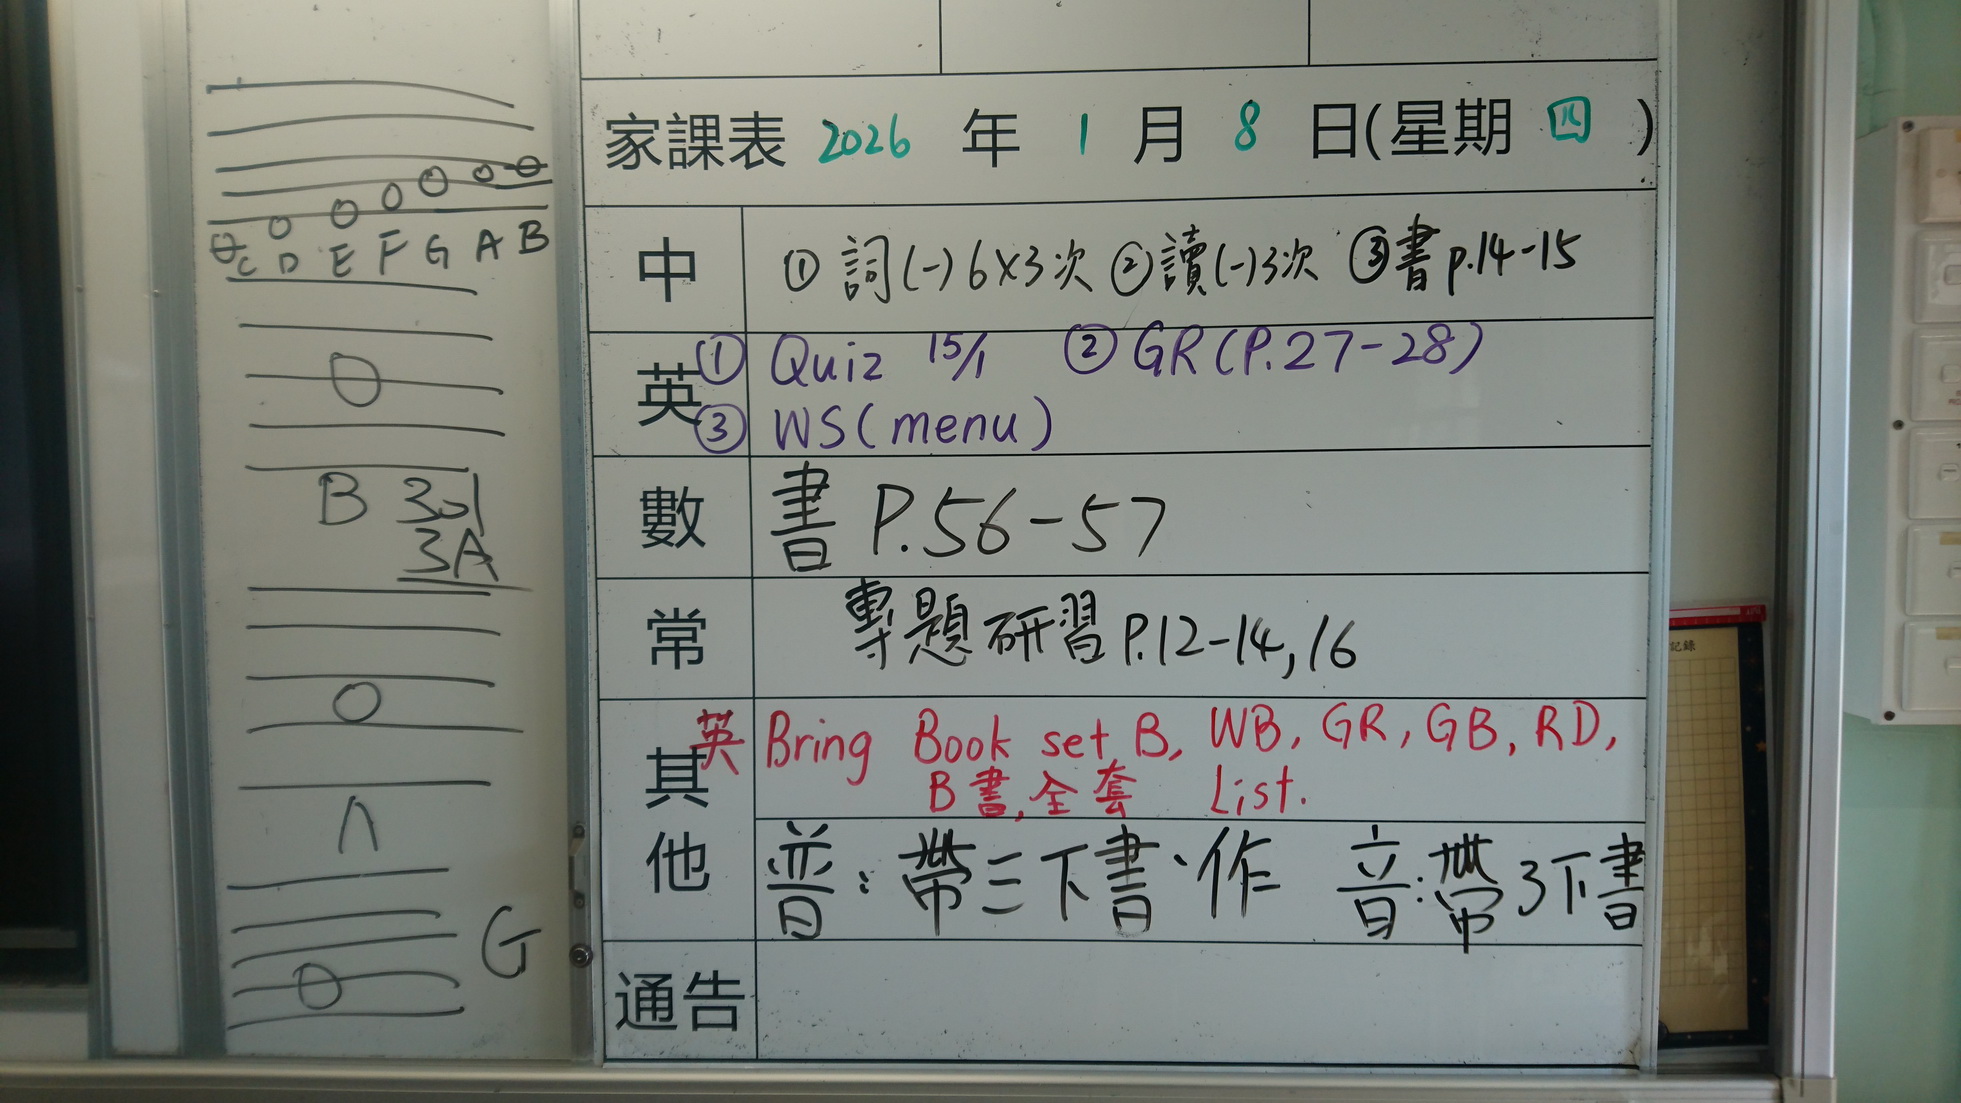 家課表 2026 年 1 月 8 日(星期 四 )
中 ① 詞(一)6×3次 ②讀(一)3次 ③書p.14-15
英 ① Quiz 15/1 ② GR(P.27-28)
③ WS(menu)
數 書 P.56-57
常 專題研習P.12-14,16
其他 英 Bring Book set B, WB, GR, GB, RD,
B書,全套 List.
普:帶三下書、作 音:帶3下書
通告
C D E F G A B
B 301
3A
G
記錄